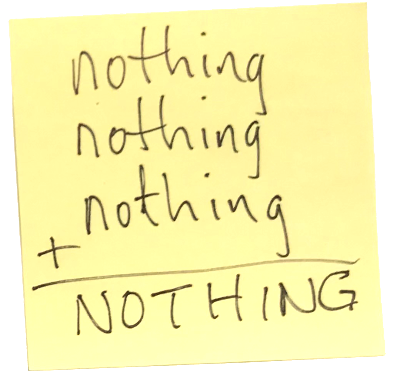 nothing
nothing
+ nothing
NOTHING